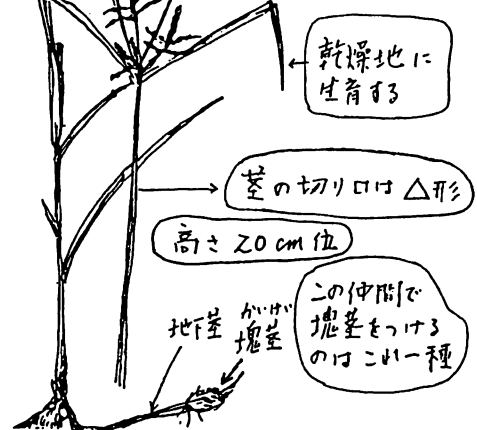 乾燥地に
生育する
茎の切り口は△形
高さ20cm位
この仲間で
塊茎をつける
のはこれ一種
地下茎
かいけい
塊茎